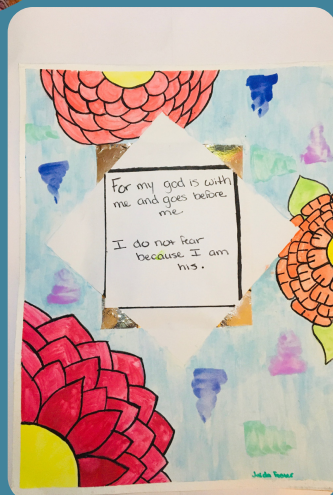 For my god is with
me and goes before
me
I do not fear
because I am
his.